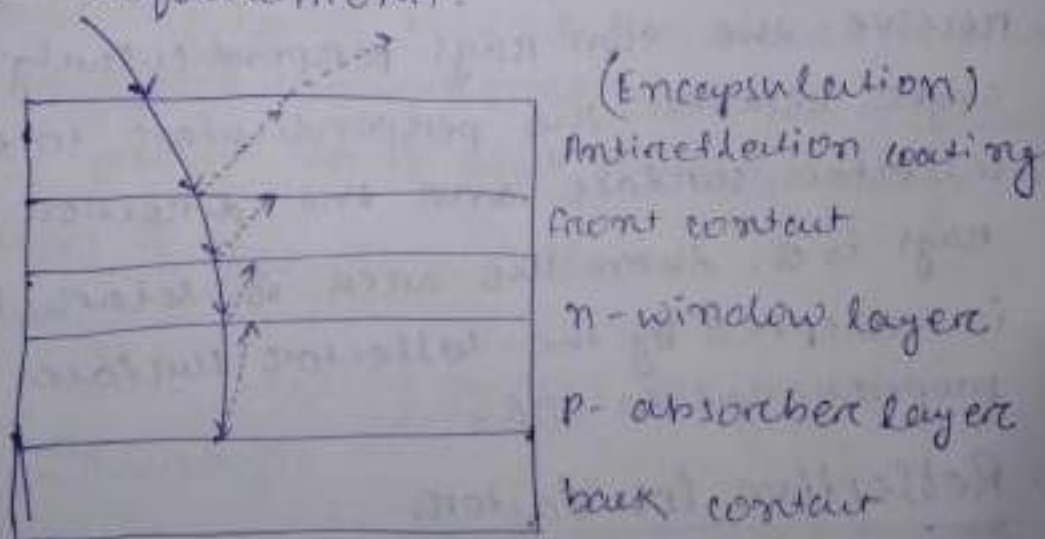 (Encapsulation)
Antireflection coating
front contact
n-window layer
P- absorber layer
back contact